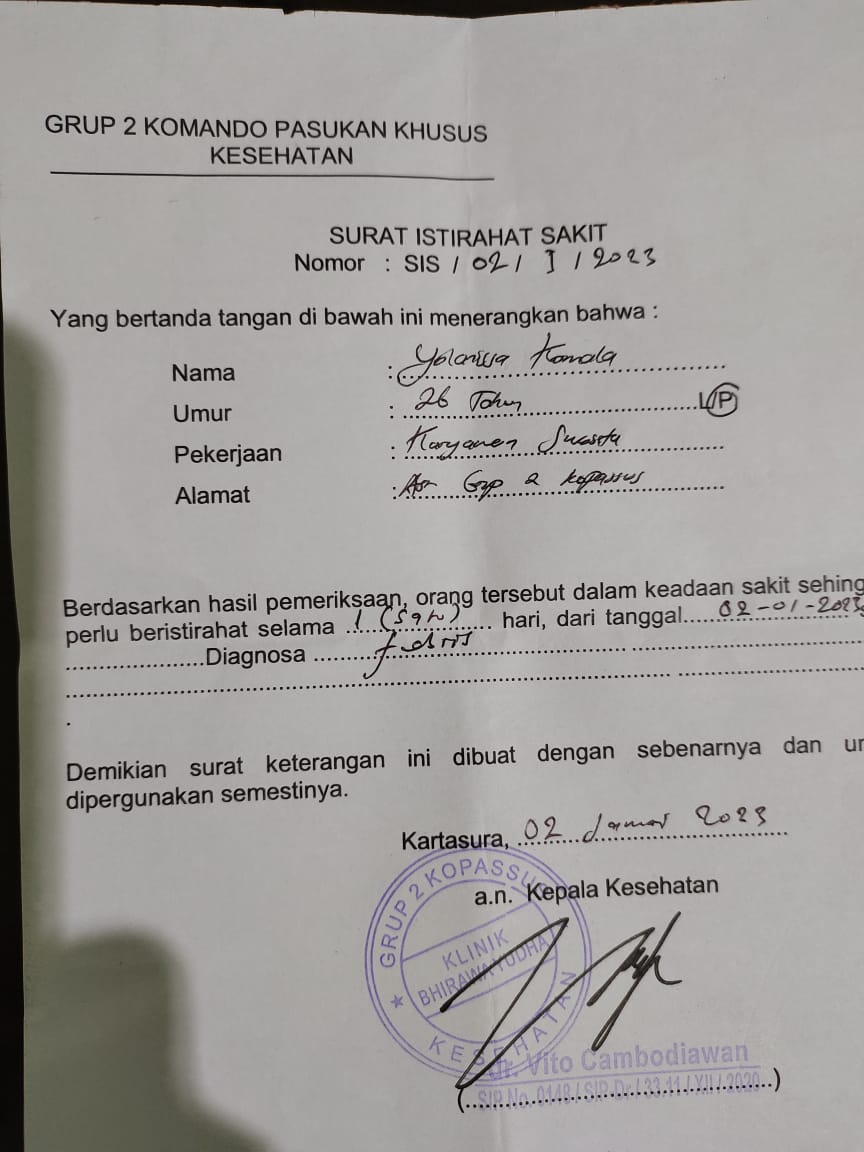 GRUP 2 KOMANDO PASUKAN KHUSUS
KESEHATAN
SURAT ISTIRAHAT SAKIT
Nomor : SIS / 02 / I / 2023
Yang bertanda tangan di bawah ini menerangkan bahwa :
Nama :
Umur : 26 Tahun L/P
Pekerjaan : Karyawan Swasta
Alamat : Grup 2 Kopassus
Berdasarkan hasil pemeriksaan, orang tersebut dalam keadaan sakit sehing
perlu beristirahat selama 1 (satu) hari, dari tanggal 02-01-2023
Diagnosa febris
Demikian surat keterangan ini dibuat dengan sebenarnya dan un
dipergunakan semestinya.
Kartasura, 02 Januari 2023
a.n. Kepala Kesehatan
GRUP 2 KOPASSUS
KLINIK
BHIRAWA YUDHA
KESEHATAN
dr. Vito Cambodiawan
(SIP.No. 0148 / SIP-Dr / 33.11 / XII / 2020)